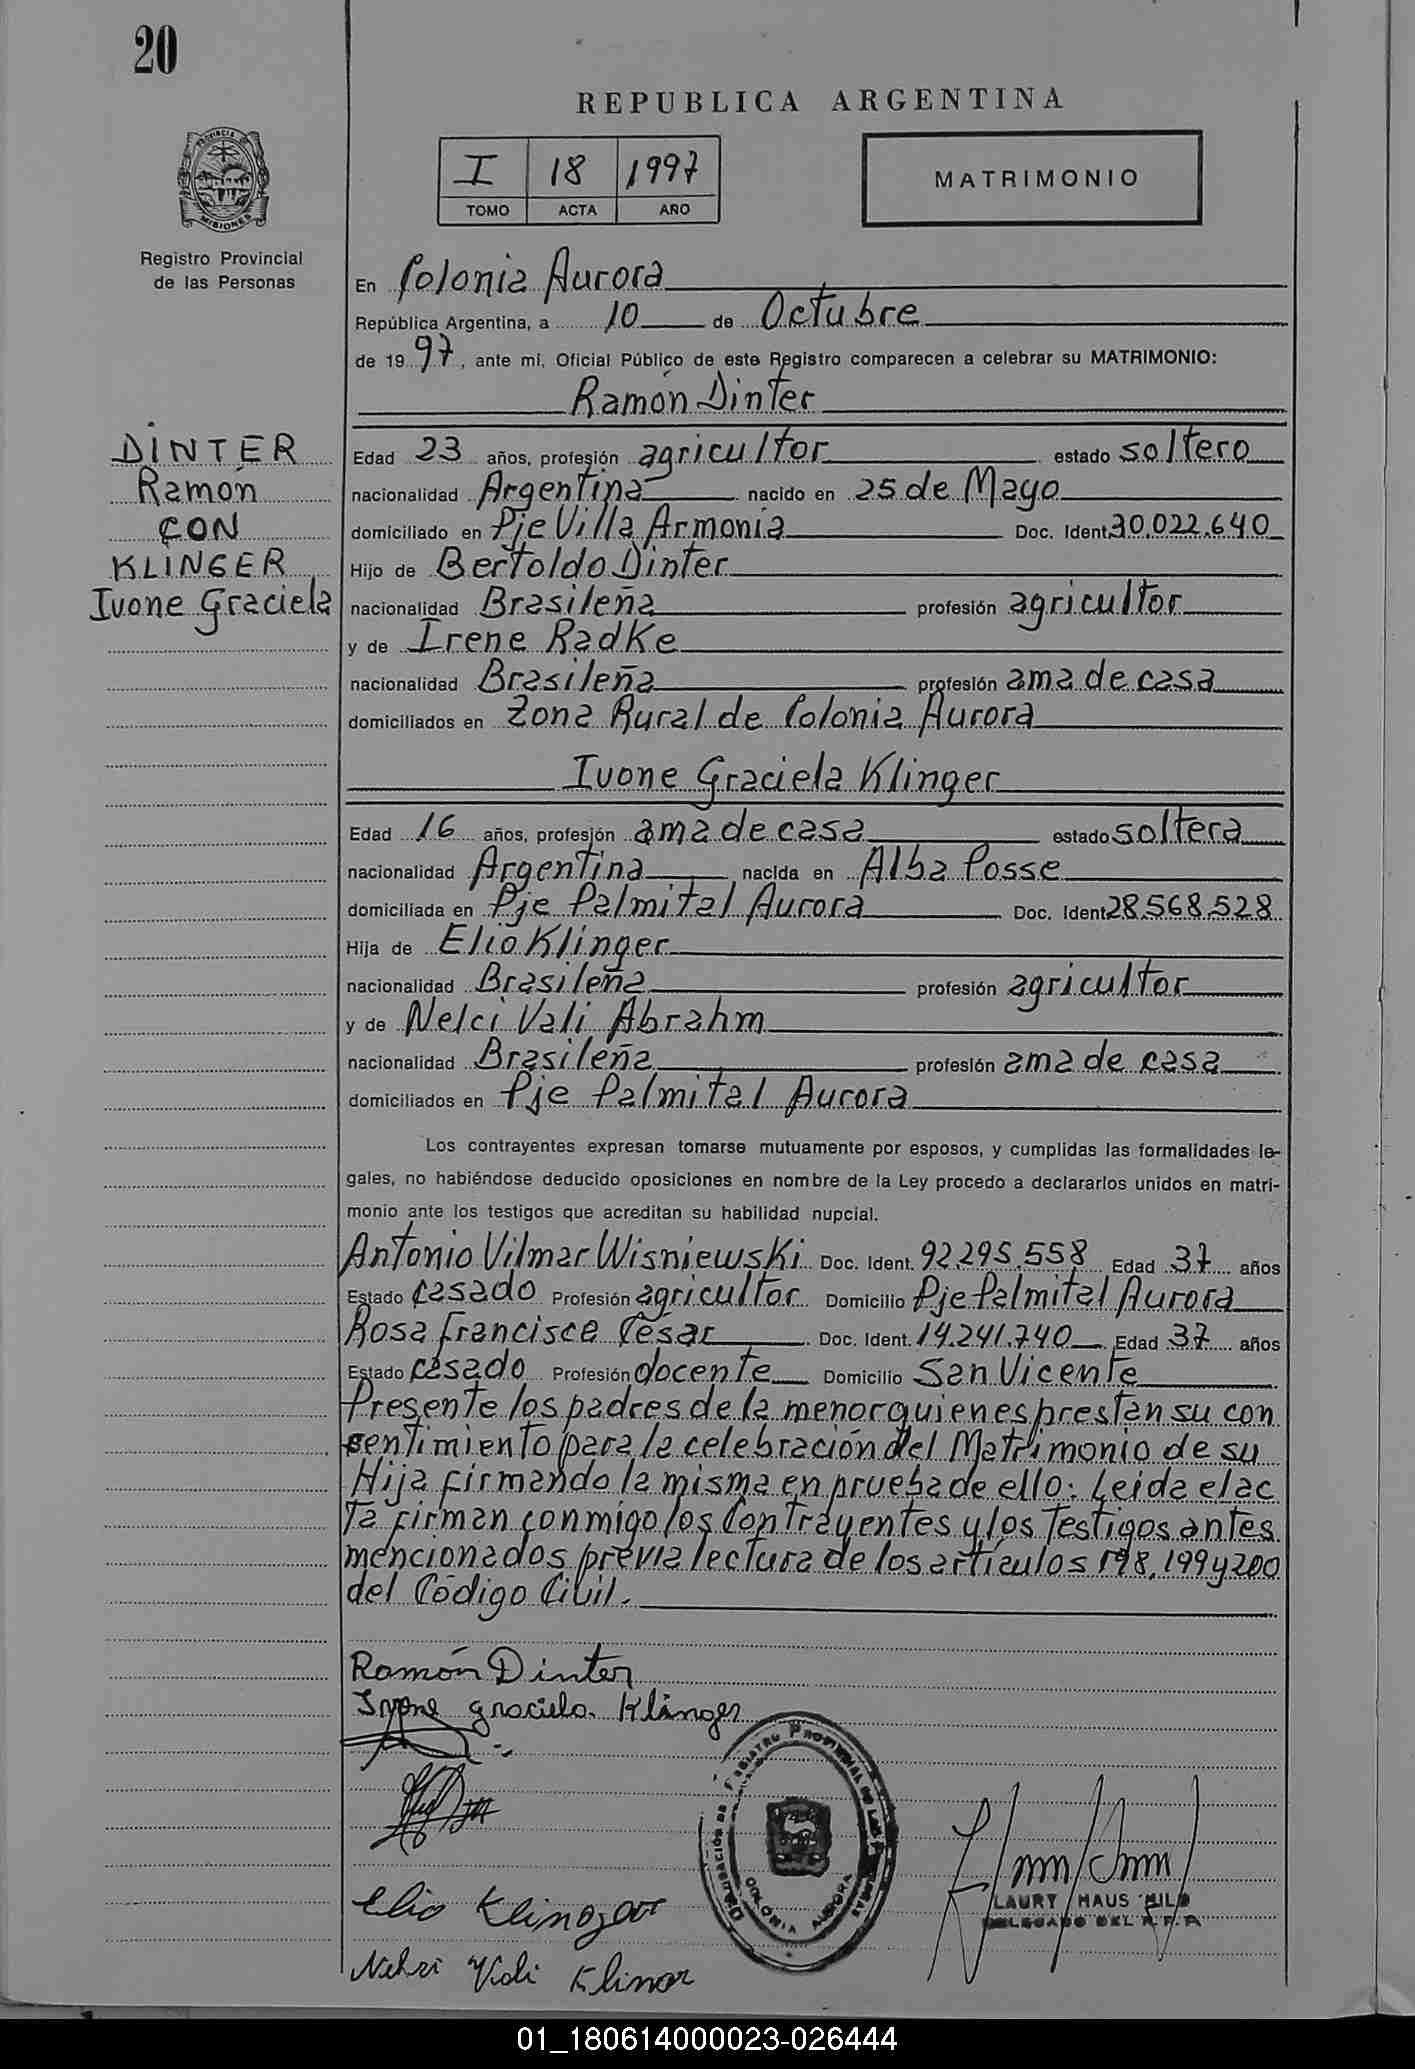 20
REPUBLICA ARGENTINA
PROVINCIA DE
MISIONES
I 18 1997
TOMO ACTA AÑO
MATRIMONIO
Registro Provincial
de las Personas
En Colonia Aurora
República Argentina, a 10 de Octubre
de 19 97, ante mi, Oficial Público de este Registro comparecen a celebrar su MATRIMONIO:
Ramón Dinter
DINTER
Ramón
CON
KLINGER
Ivone Graciela
Edad 23 años, profesión agricultor estado soltero
nacionalidad Argentina nacido en 25 de Mayo
domiciliado en Pje Villa Armonía Doc. Ident. 30.022.640
Hijo de Bertoldo Dinter
nacionalidad Brasileña profesión agricultor
y de Irene Radke
nacionalidad Brasileña profesión ama de casa
domiciliados en Zona Rural de Colonia Aurora
Ivone Graciela Klinger
Edad 16 años, profesión ama de casa estado soltera
nacionalidad Argentina nacida en Alba Posse
domiciliada en Pje Palmital Aurora Doc. Ident 28.568.528
Hija de Elio Klinger
nacionalidad Brasileña profesión agricultor
y de Nelci Vali Abrahm
nacionalidad Brasileña profesión ama de casa
domiciliados en Pje Palmital Aurora
Los contrayentes expresan tomarse mutuamente por esposos, y cumplidas las formalidades le-
gales, no habiéndose deducido oposiciones en nombre de la Ley procedo a declararlos unidos en matri-
monio ante los testigos que acreditan su habilidad nupcial.
Antonio Vilmar Wisniewski Doc. Ident. 92.295.558 Edad 37 años
Estado casado Profesión agricultor Domicilio Pje Palmital Aurora
Rosa Francisca César Doc. Ident. 14.241.740 Edad 37 años
Estado casado Profesión docente Domicilio San Vicente
Presente los padres de la menor quienes prestan su con
sentimiento para la celebración del Matrimonio de su
Hija firmando la misma en prueba de ello: Leida el ac
ta firman conmigo los Contrayentes y los Testigos antes
mencionados previa lectura de los artículos 198, 199 y 200
del Código Civil.
Ramón Dinter
Ivone graciela Klinger
DELEGACIÓN DE REGISTRO PROVINCIAL DE LAS
COLONIA AURORA
LAURY HAUS HILD
DELEGADO DEL R.P.P.
Elio Klinger
Vali Klinger
01_180614000023-026444